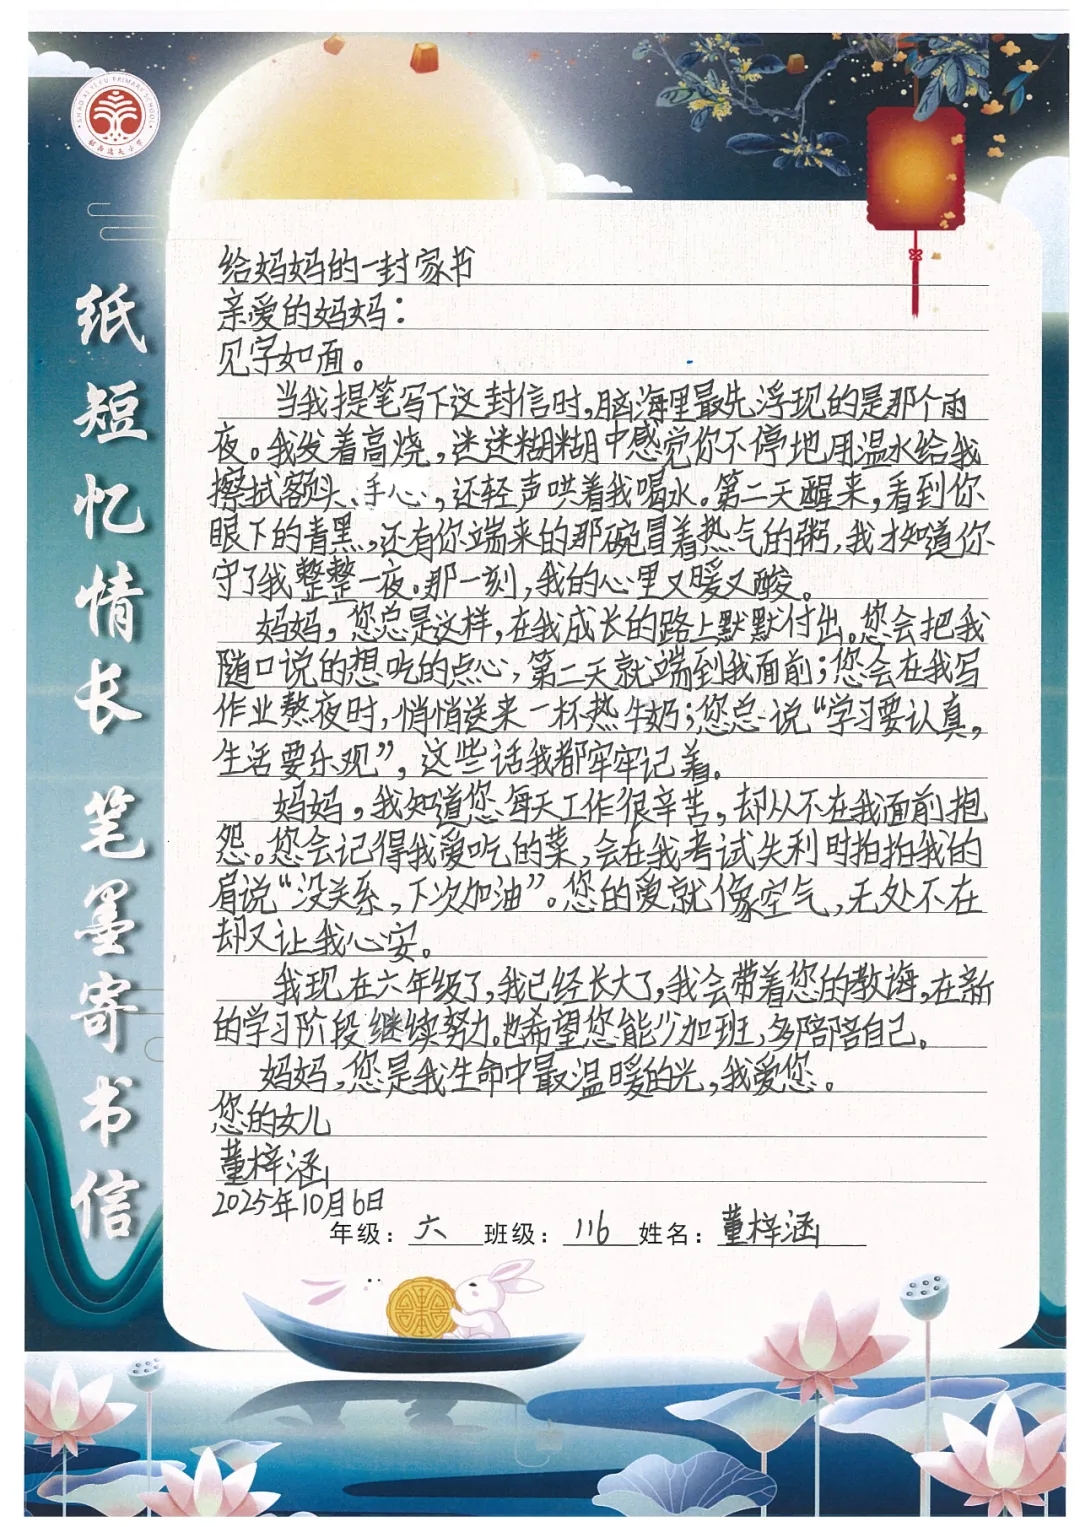 SHAO XI YI FU PRIMARY SCHOOL
纸短忆情长 笔墨寄书信
给妈妈的一封家书
亲爱的妈妈：
见字如面。
当我提笔写下这封信时，脑海里最先浮现的是那个雨
夜。我发着高烧，迷迷糊糊中感觉你不停地用温水给我
擦拭额头、手心，还轻声哄着我喝水。第二天醒来，看到你
眼下的青黑，还有你端来的那碗冒着热气的粥，我才知道你
守了我整整一夜。那一刻，我的心里又暖又酸。
妈妈，您总是这样，在我成长的路上默默付出。您会把我
随口说的想吃的点心，第二天就端到我面前；您会在我写
作业熬夜时，悄悄送来一杯热牛奶；您总说“学习要认真，
生活要乐观”，这些话我都牢牢记着。
妈妈，我知道您每天工作很辛苦，却从不在我面前抱
怨。您会记得我爱吃的菜，会在我考试失利时拍拍我的
肩说“没关系，下次加油”。您的爱就像空气，无处不在
却又让我心安。
我现在六年级了，我已经长大了，我会带着您的教诲，在新
的学习阶段继续努力。也希望您能少加班，多陪陪自己。
妈妈，您是我生命中最温暖的光，我爱您。
您的女儿
董梓涵
2025年10月6日
年级：六 班级：116 姓名：董梓涵